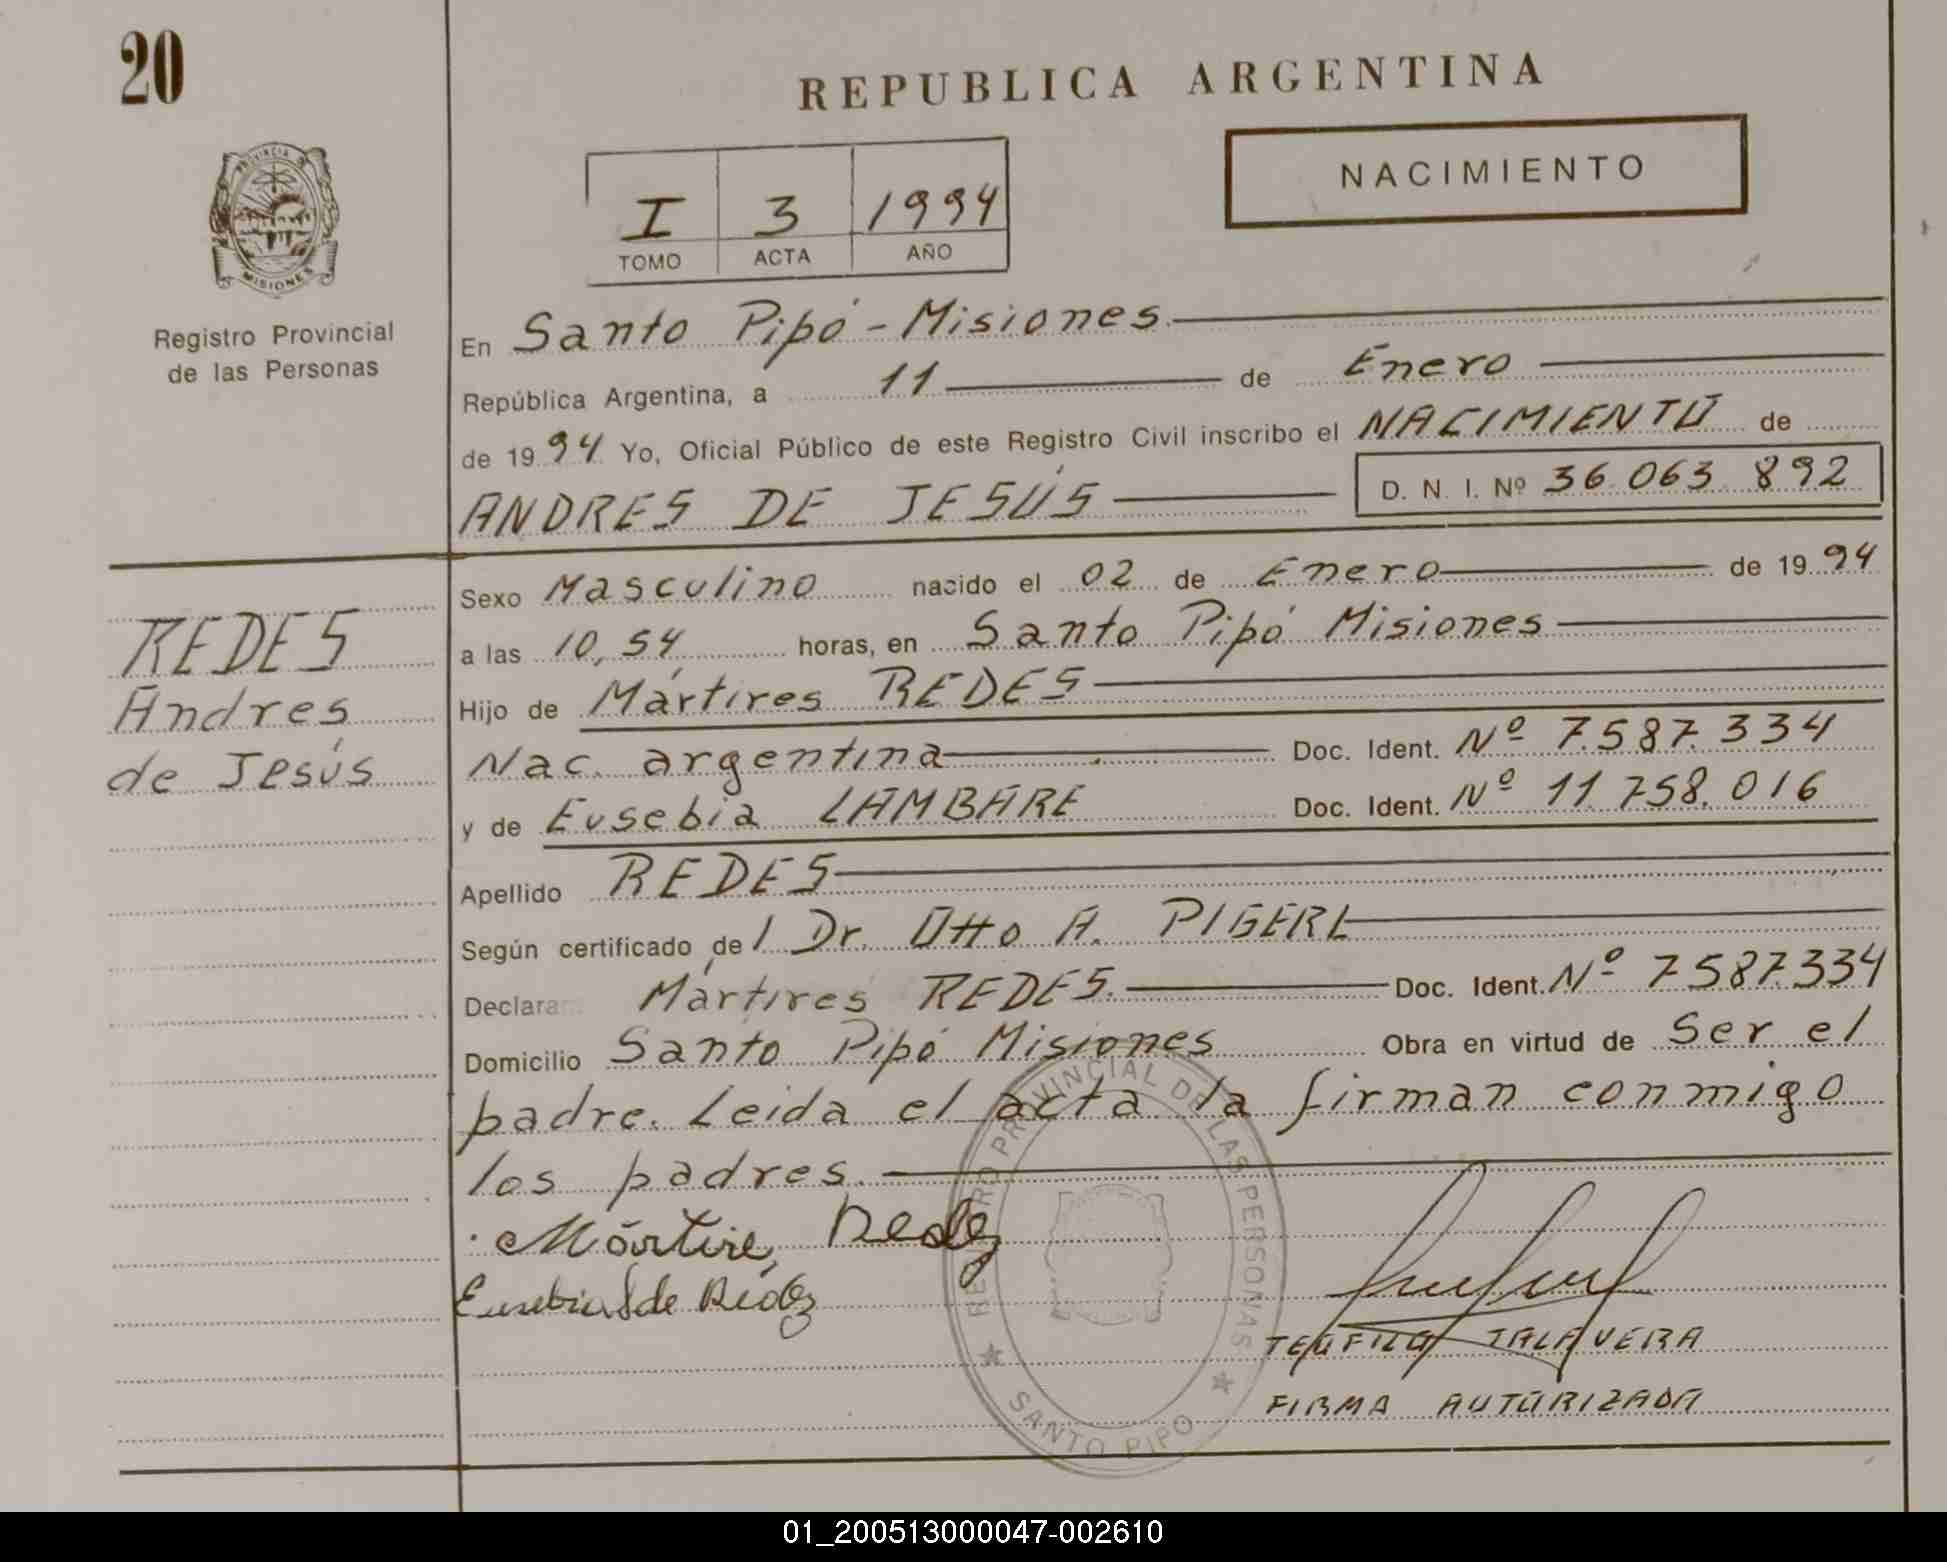 20
REPUBLICA ARGENTINA
NACIMIENTO
I 3 1994
TOMO ACTA AÑO
PROVINCIA DE MISIONES
Registro Provincial
de las Personas
En Santo Pipó - Misiones.
República Argentina, a 11 de Enero
de 1994 Yo, Oficial Público de este Registro Civil inscribo el NACIMIENTO de
ANDRES DE JESÚS D. N. I. Nº 36.063.892
REDES
Andres
de Jesús
Sexo Masculino nacido el 02 de Enero de 1994
a las 10,54 horas, en Santo Pipó Misiones
Hijo de Mártires REDES
Nac. argentina Doc. Ident. Nº 7.587.334
y de Eusebia LAMBARE Doc. Ident. Nº 11.758.016
Apellido REDES
Según certificado del Dr. Otto A. PIGERL
Declara Mártires REDES. Doc. Ident. Nº 7.587.334
Domicilio Santo Pipó Misiones Obra en virtud de Ser el
padre. Leida el acta la firman conmigo
los padres.
Mártire,
Eusebia de
REGISTRO PROVINCIAL DE LAS PERSONAS
SANTO PIPO
TEÓFILO TALAVERA
FIRMA AUTORIZADA
01_200513000047-002610